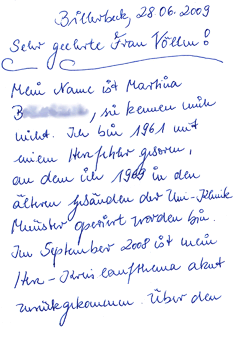 Billerbeck, 28.06.2009
Sehr geehrte Frau Völlm!
Mein Name ist Martina
B, sie kennen mich
nicht. Ich bin 1961 mit
einem Herzfehler geboren,
an dem ich 1969 in den
älteren der Uni-Klinik
Münster operiert worden bin.
Im September 2008 ist mein
Herz-Kreislaufthema akut
zurückgekommen. Über den